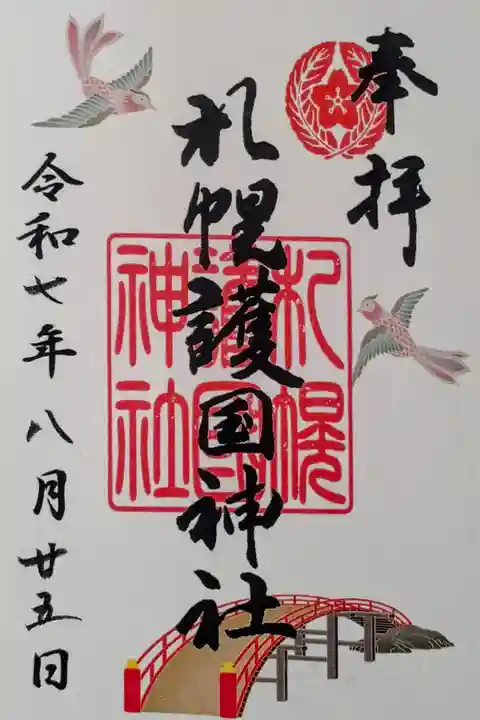 奉拝
札幌護国神社
札幌
護国
神社
令和七年八月廿五日